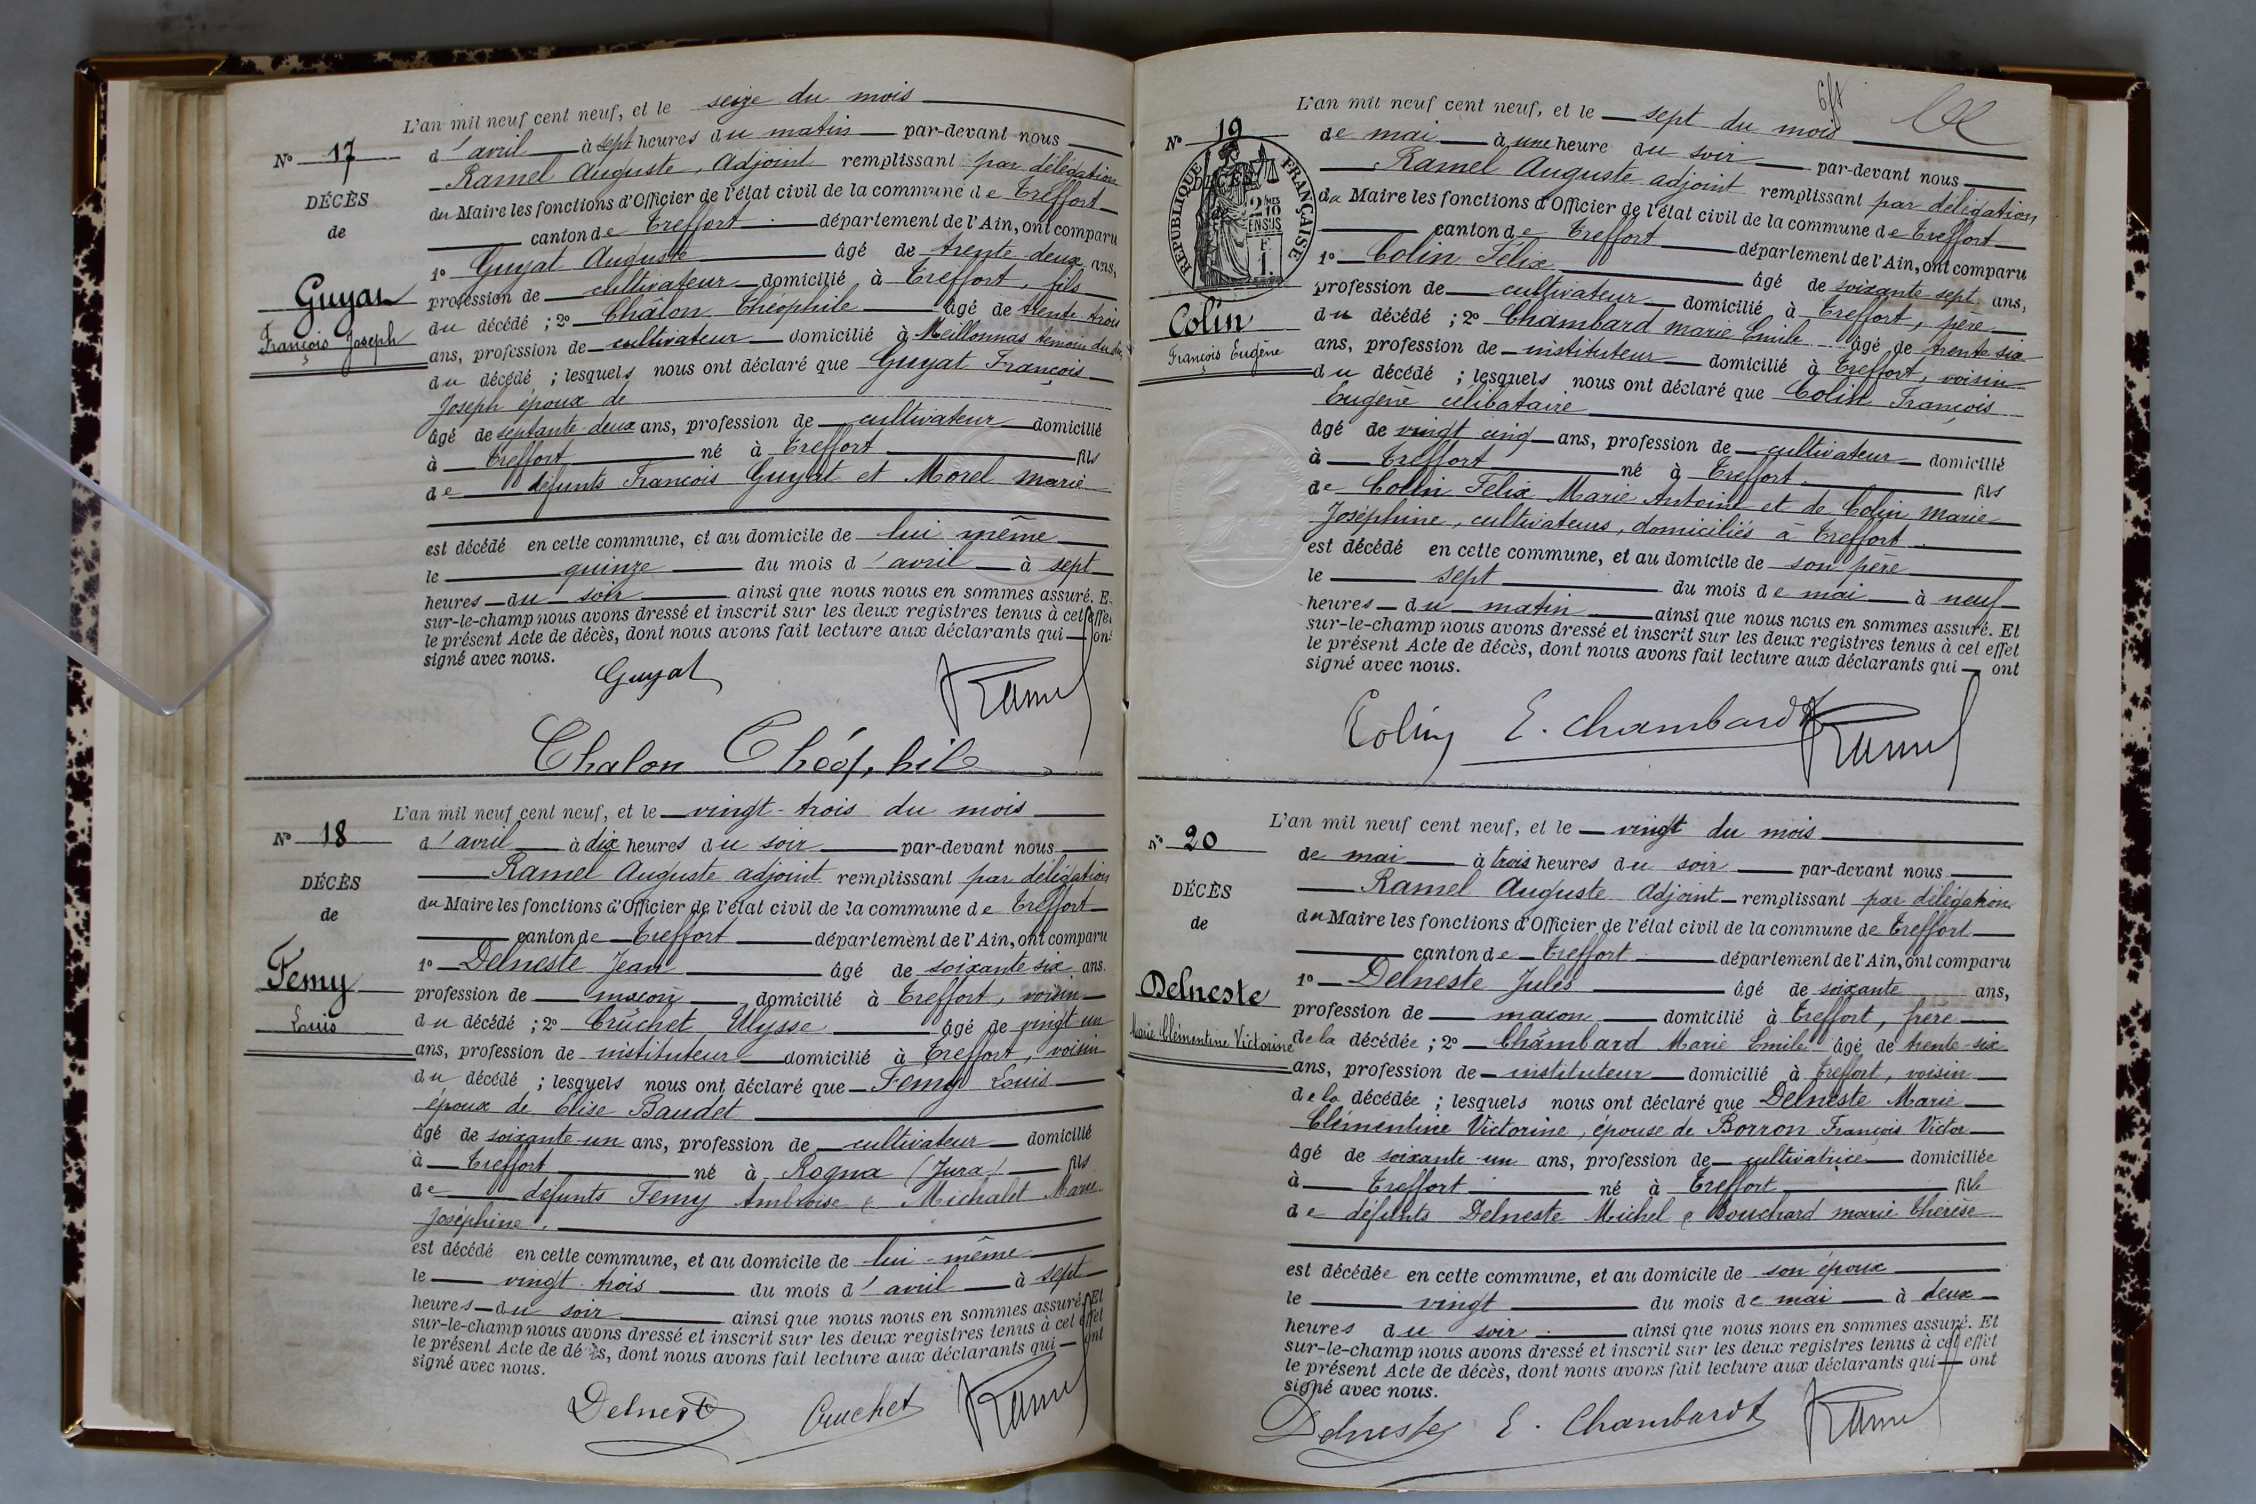 L'an mil neuf cent neuf, et le seize du mois
N° 17
d'avril à sept heures du matin par-devant nous
Ramel Auguste, Adjoint remplissant par délégation
DÉCÈS
du Maire les fonctions d'Officier de l'état civil de la commune de Treffort
de
canton de Treffort département de l'Ain, ont comparu
1° Guyat Auguste âgé de trente-deux ans,
Guyat
profession de cultivateur domicilié à Treffort, fils
François Joseph
du décédé ; 2° Châlon Théophile âgé de trente-trois
ans, profession de cultivateur domicilié à Meillonnas témoin
du décédé ; lesquels nous ont déclaré que Guyat François
Joseph époux de
âgé de septante-deux ans, profession de cultivateur domicilié
à Treffort né à Treffort fils
de défunts François Guyat et Morel Marie
est décédé en cette commune, et au domicile de lui même
le quinze du mois d'avril à sept
heures du soir ainsi que nous nous en sommes assuré. E
sur-le-champ nous avons dressé et inscrit sur les deux registres tenus à cet effet
le présent Acte de décès, dont nous avons fait lecture aux déclarants qui ont
signé avec nous.
Guyat
Ramel
Chalon Théophile
L'an mil neuf cent neuf, et le vingt-trois du mois
N° 18
d'avril à dix heures du soir par-devant nous
Ramel Auguste adjoint remplissant par délégation
DÉCÈS
du Maire les fonctions d'Officier de l'état civil de la commune de Treffort
de
canton de Treffort département de l'Ain, ont comparu
1° Delneste Jean âgé de soixante six ans.
Femy
profession de maçon domicilié à Treffort, voisin
Louis
du décédé ; 2° Crûchet Ulysse âgé de vingt un
ans, profession de instituteur domicilié à Treffort, voisin
du décédé ; lesquels nous ont déclaré que Femy Louis
époux de Elise Baudet
âgé de soixante-un ans, profession de cultivateur domicilié
à Treffort né à Rogna (Jura) fils
de défunts Femy Ambroise & Michalet Marie
Joséphine.
est décédé en cette commune, et au domicile de lui-même
le vingt-trois du mois d'avril à sept
heures du soir ainsi que nous nous en sommes assuré. Et
sur-le-champ nous avons dressé et inscrit sur les deux registres tenus à cet effet
le présent Acte de décès, dont nous avons fait lecture aux déclarants qui ont
signé avec nous.
Delneste Cruchet Ramel
L'an mil neuf cent neuf, et le sept du mois
N° 19
de mai à une heure du soir par-devant nous
Ramel Auguste adjoint remplissant par délégation
DÉCÈS
RÉPUBLIQUE FRANÇAISE
du Maire les fonctions d'Officier de l'état civil de la commune de Treffort
canton de Treffort département de l'Ain, ont comparu
1° Colin Félix âgé de soixante-sept ans,
profession de cultivateur domicilié à Treffort, père
Colin
du décédé ; 2° Chambard Marie Emile âgé de trente-six
François Eugène
ans, profession de instituteur domicilié à Treffort, voisin
du décédé ; lesquels nous ont déclaré que Colin François
Eugène célibataire
âgé de vingt cinq ans, profession de cultivateur domicilié
à Treffort né à Treffort fils
de Colin Félix Marie Antoine et de Colin Marie
Joséphine, cultivateurs, domiciliés à Treffort
est décédé en cette commune, et au domicile de son père
le sept du mois de mai à neuf
heures du matin ainsi que nous nous en sommes assuré. Et
sur-le-champ nous avons dressé et inscrit sur les deux registres tenus à cet effet
le présent Acte de décès, dont nous avons fait lecture aux déclarants qui ont
signé avec nous.
Colin E. Chambard Ramel
L'an mil neuf cent neuf, et le vingt du mois
N° 20
de mai à trois heures du soir par-devant nous
Ramel Auguste Adjoint remplissant par délégation
DÉCÈS
du Maire les fonctions d'Officier de l'état civil de la commune de Treffort
de
canton de Treffort département de l'Ain, ont comparu
1° Delneste Jules âgé de soixante ans,
Delneste
profession de maçon domicilié à Treffort, frère
Marie Clémentine Victorine
de la décédée ; 2° Chambard Marie Emile âgé de trente-six
ans, profession de instituteur domicilié à Treffort, voisin
de la décédée ; lesquels nous ont déclaré que Delneste Marie
Clémentine Victorine, épouse de Borron François Victor
âgé de soixante-un ans, profession de cultivatrice domiciliée
à Treffort né à Treffort fille
de défunts Delneste Michel & Bouchard Marie Thérèse
est décédée en cette commune, et au domicile de son époux
le vingt du mois de mai à deux
heures du soir ainsi que nous nous en sommes assuré. Et
sur-le-champ nous avons dressé et inscrit sur les deux registres tenus à cet effet
le présent Acte de décès, dont nous avons fait lecture aux déclarants qui ont
signé avec nous.
Delneste E. Chambard Ramel